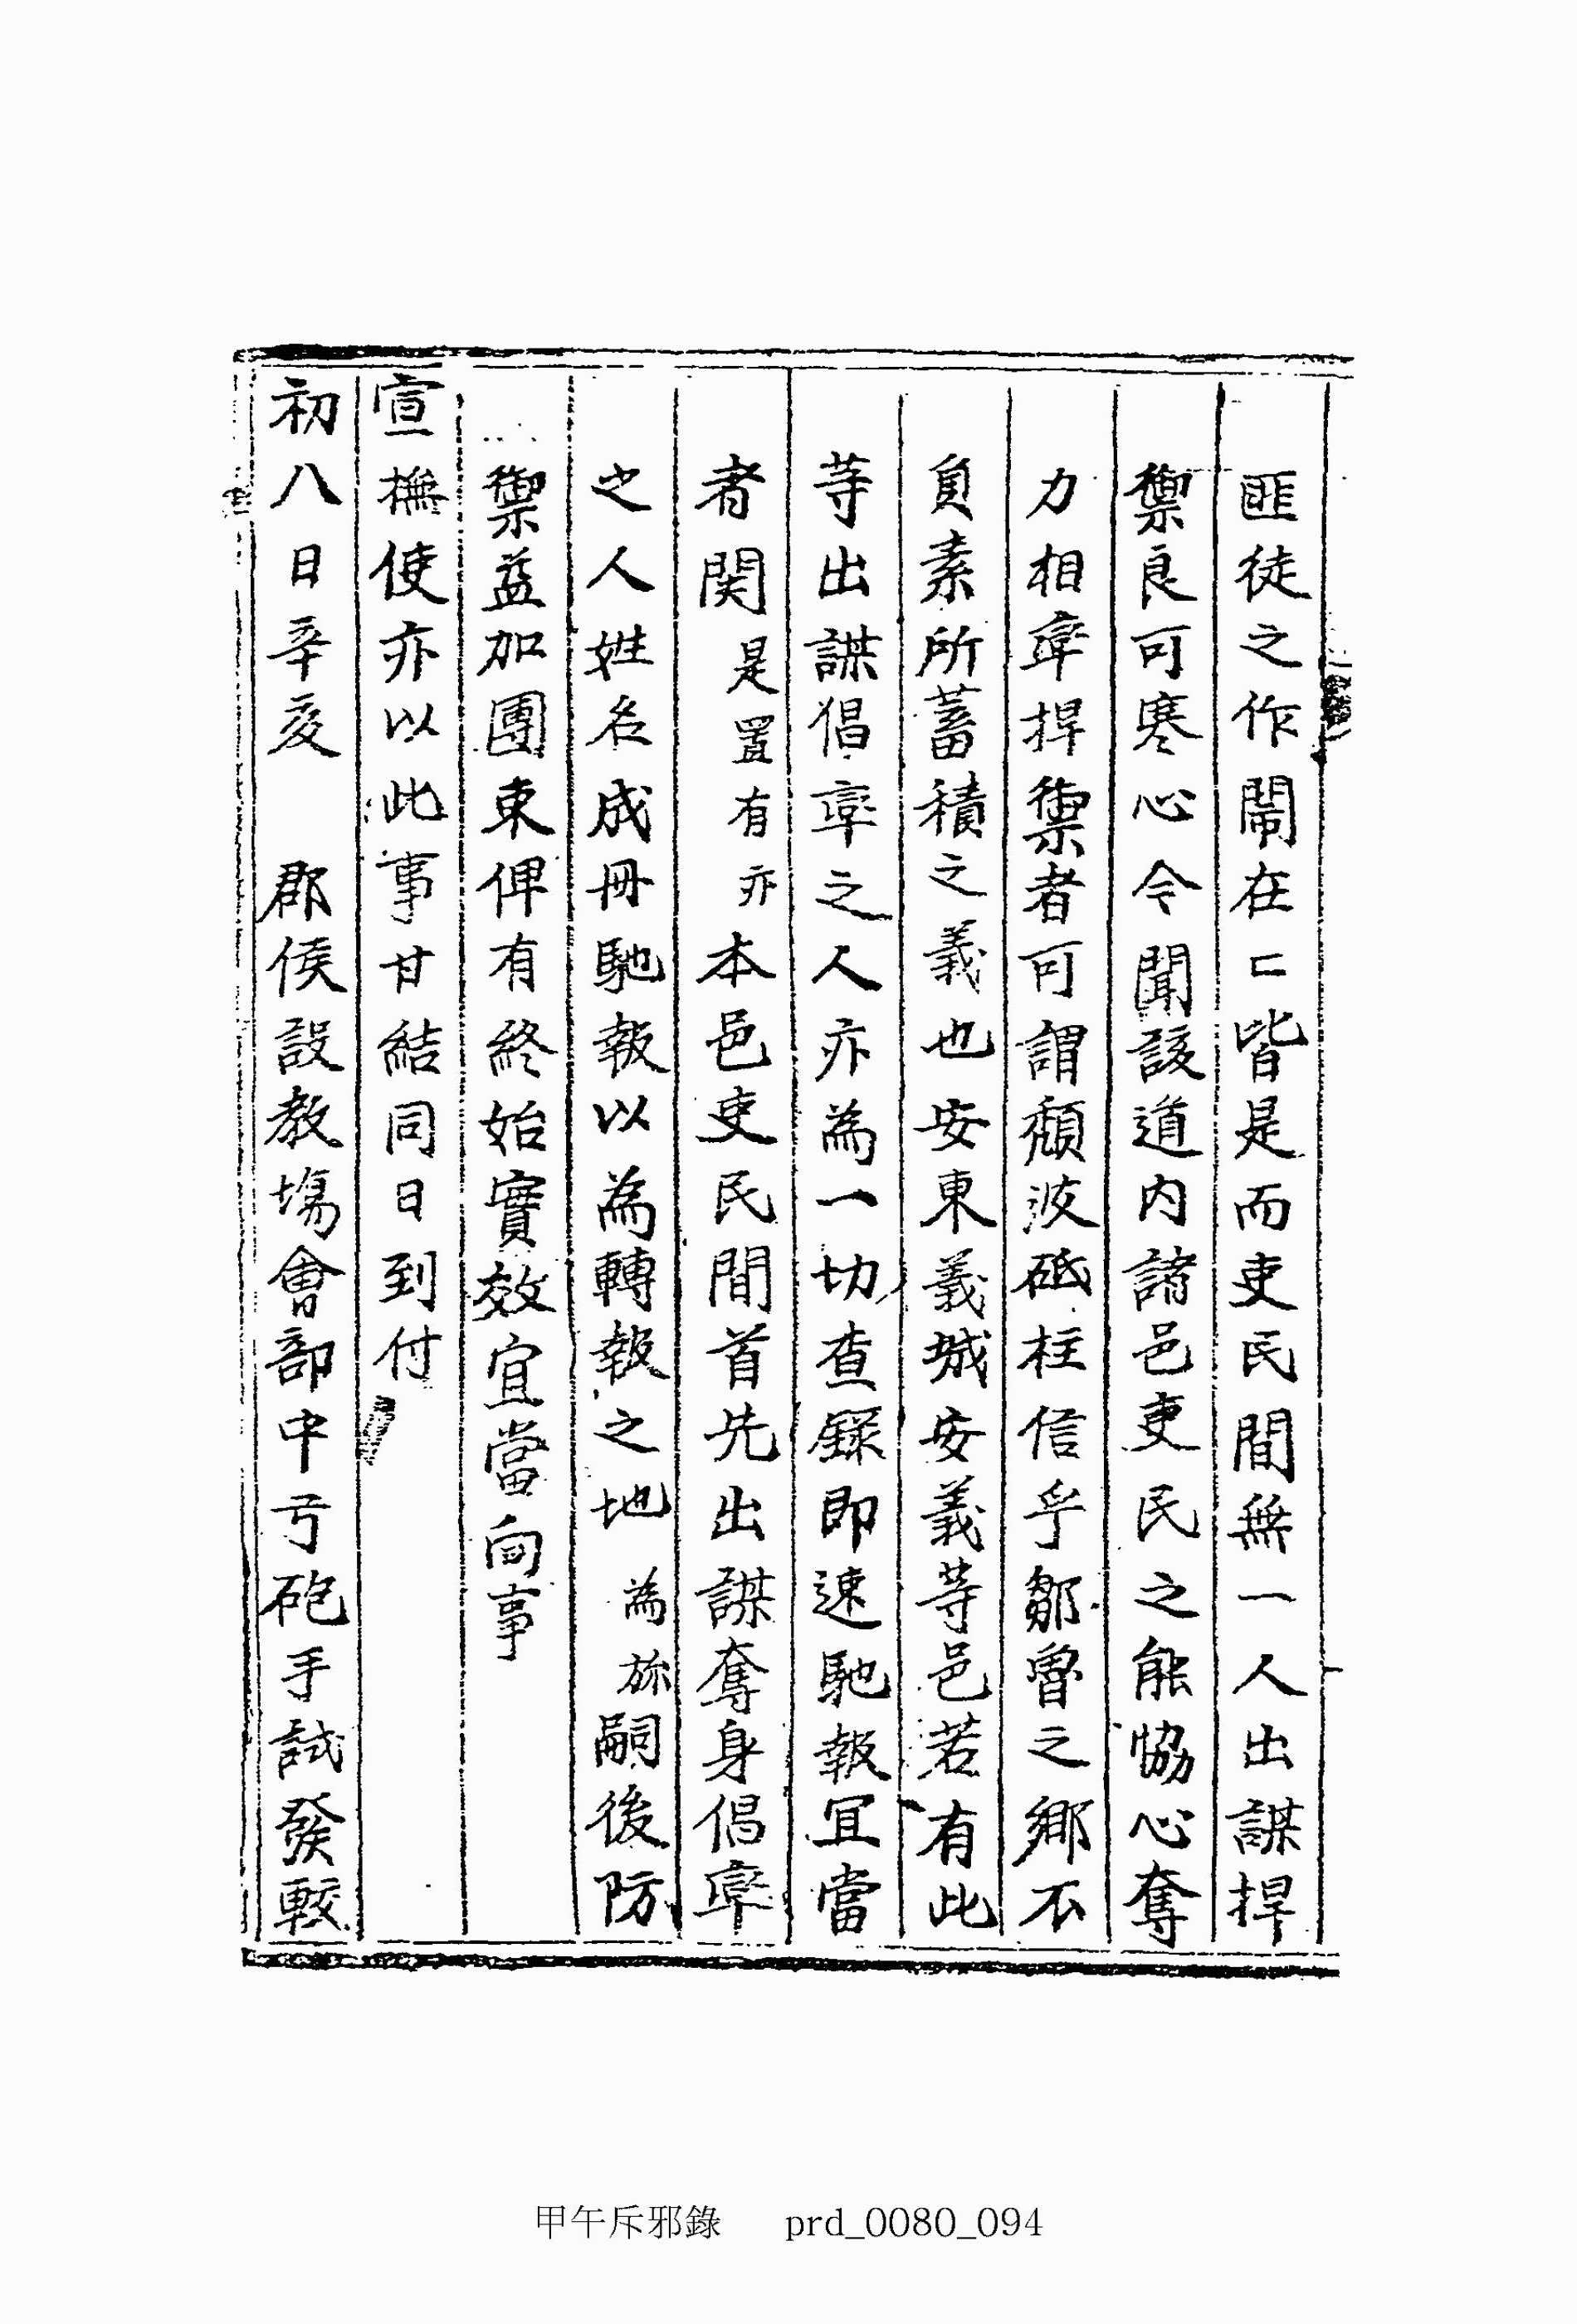 匪徒之作閙在〻皆是而吏民間無一人出謀捍
禦良可寒心今聞該道內諸邑吏民之能恊心奮
力相率捍禦者可謂頹波砥柱信乎鄒魯之鄕不
負素所蓄積之義也安東義城安義等邑若有此
等出謀倡率之人亦為一切查錄即速馳報宜當
者関是置有亦本邑吏民間首先出謀奮身倡率
之人姓名成冊馳報以為轉報之地為旀嗣後防
禦益加團束俾有終始實效宜當向事
宣撫使亦以此事甘結同日到付
初八日辛亥　郡侯設教塲會部中弓砲手試發較
甲午斥邪錄　prd_0080_094